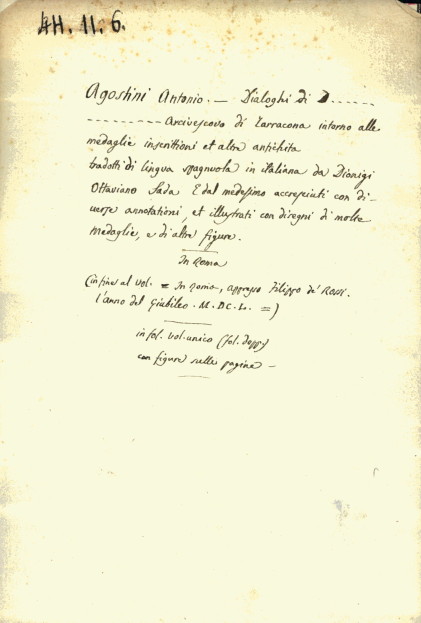 4H. 11. 6.
Agostini Antonio. — Dialoghi di D. - - - - -
- - - - - - - - - Arcivescovo di Tarracona intorno alle
medaglie inscrittioni et altre antichita
tradotti di lingua spagnuola in italiana da Dionigi
Ottaviano Sada E dal medesimo accresciuti con di-
uerse annotationi, et illustrati con disegni di molte
medaglie, e di altre figure.
In Roma
(infine al vol. = In Roma, appresso Filippo de' Rossi.
l'anno del Giubileo. M. DC. L. =)
in fol. vol. unico (fol. dopp.)
con figure nelle pagine —